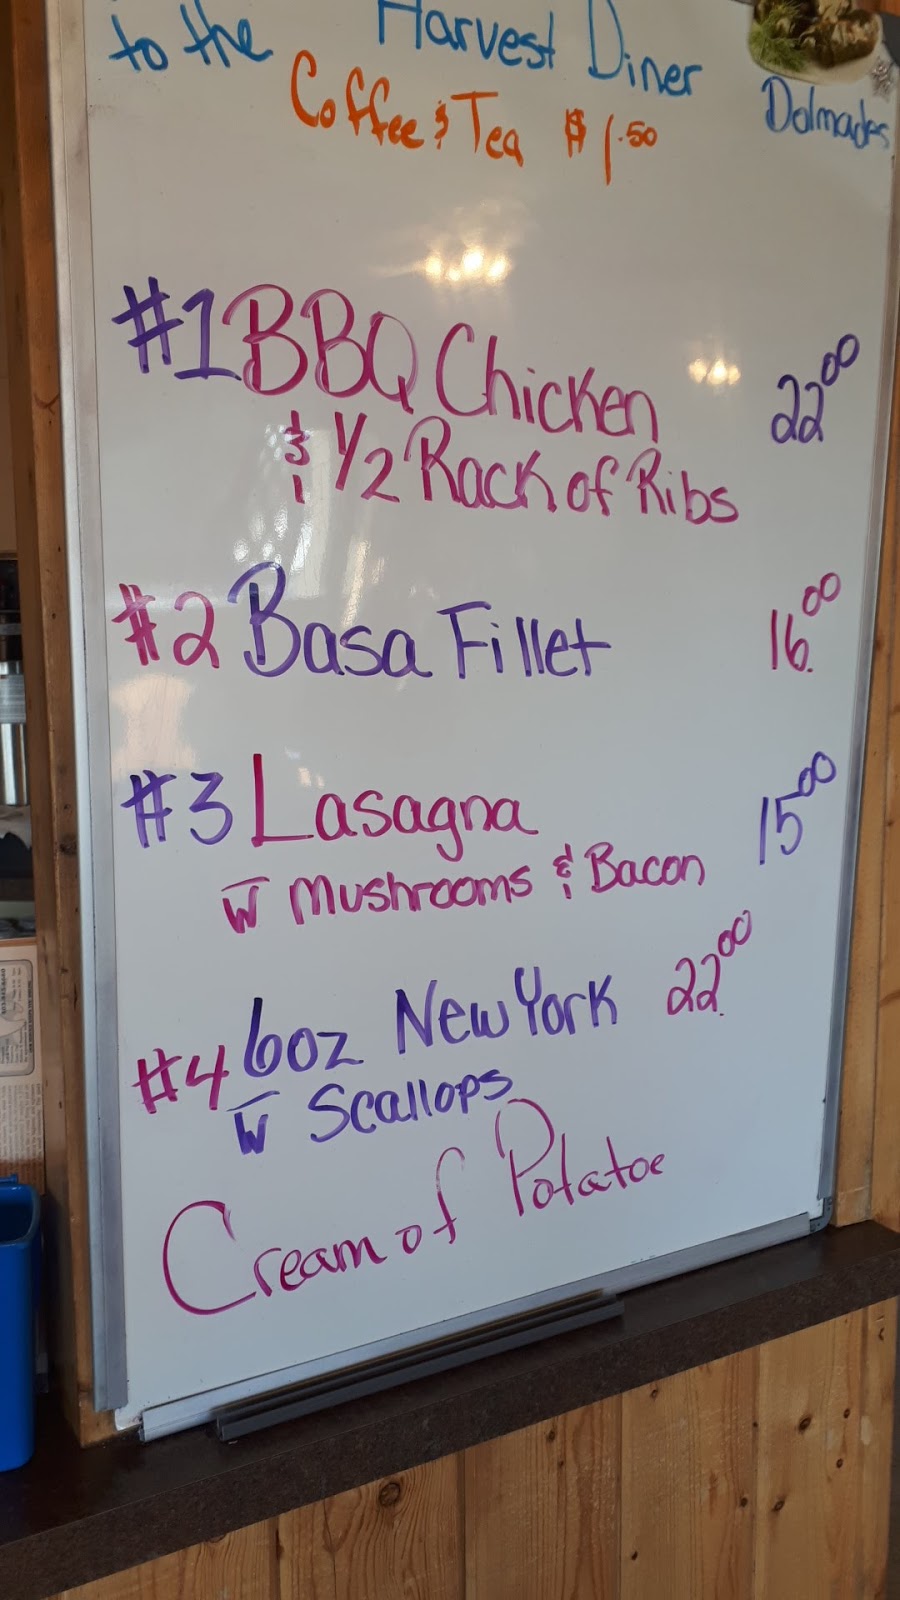 to the Harvest Diner
Coffee & Tea $1.50
Dolmades
#1 BBQ Chicken 22.00
& 1/2 Rack of Ribs
#2 Basa Fillet 16.00
#3 Lasagna 15.00
w Mushrooms & Bacon
#4 6oz New York 22.00
w Scallops
Cream of Potatoe